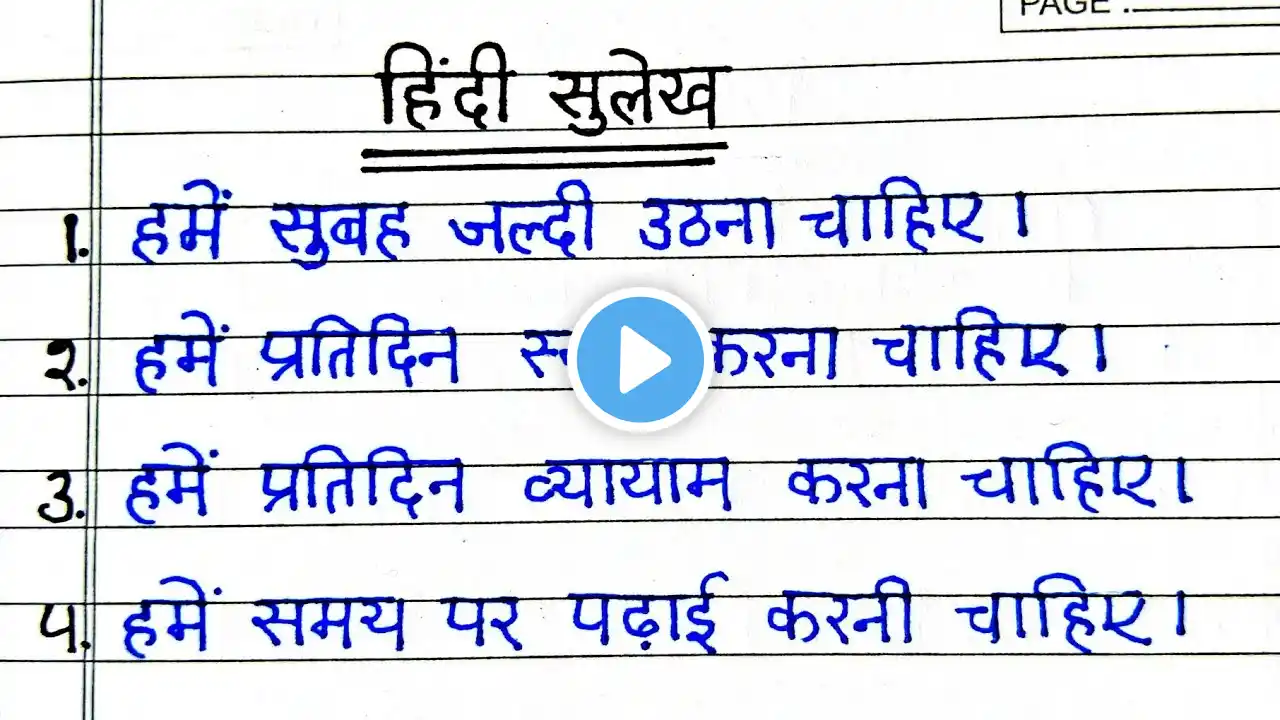 PAGE :
हिंदी सुलेख
1. हमें सुबह जल्दी उठना चाहिए।
२. हमें प्रतिदिन करना चाहिए।
3. हमें प्रतिदिन व्यायाम करना चाहिए।
4. हमें समय पर पढ़ाई करनी चाहिए।